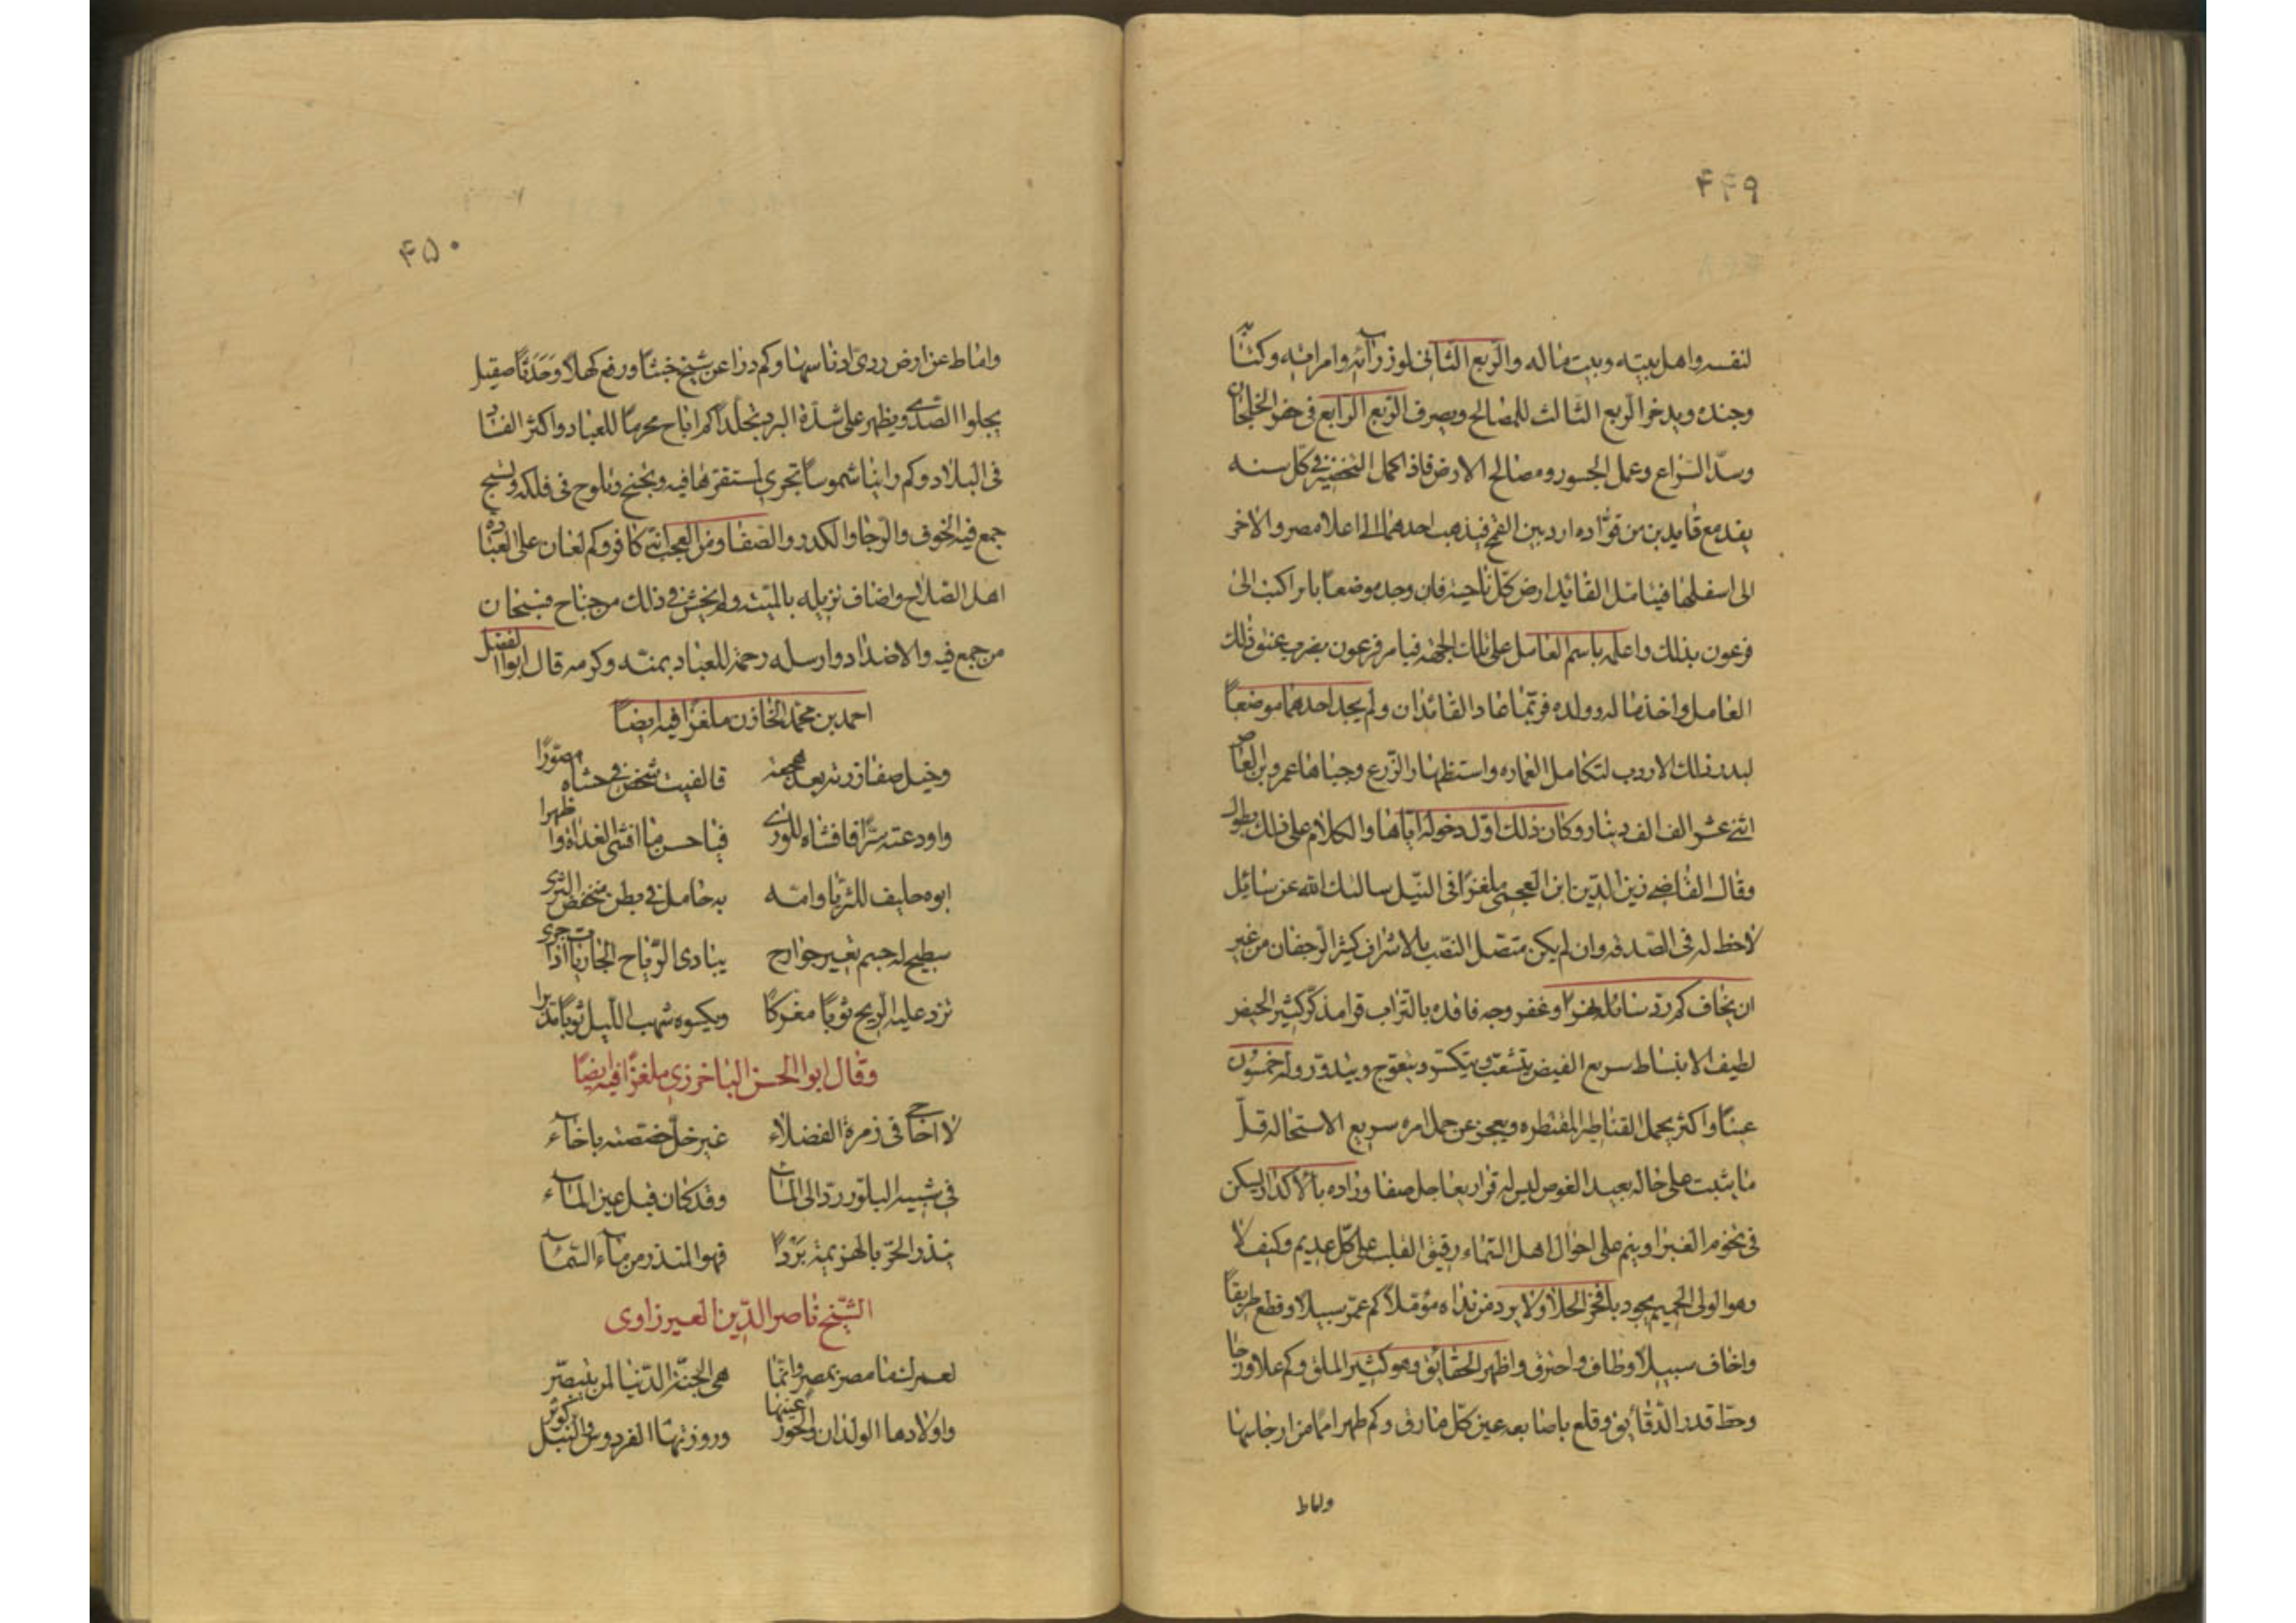 ۴۴۹
لنفسه واهل بيته وبيت ماله والربع الثانى لوزرآئه وامرائه وكتّابه
وجنده ويدخر الربع الثالث للمصالح ويصرف الربع الرابع فى حفر الخلجان
وسدّ التراع وعمل الجسور ومصالح الارض فاذا كمل التخضير فى كل سنه
يقدمع قايدين من قوّاده اردبين القمح فيذهب احدهما الى اعلا مصر والاخر
الى اسفلها فيتامّل القائد ارض كل ناحية فان وجد موضعا بايرا كتب الى
فرعون بذلك واعلمه باسم العامل على تلك الجهة فيامر فرعون بضرب عنق ذلك
العامل واخذ ماله وولده فربّما عاد القائدان ولم يجد احدهما موضعاً
لبذر ذلك الاردب لتكامل العماره واستظهار الزرع وجباها عمرو بن العاص
اثنى عشر الف الف دينار وكان ذلك اوّل دخوله اياها والكلام على ذلك يطول
وقال القاضى زين الدين ابن العجمى ملغزًا فى النيل سالتك الله عن سائل
لا حظ له فى الصدقه وان لم يكن متصل النسب بالاشراف كثير الرجفان من غير
ان يخاف كم ردّ سائله نهرا وعفر وجه فاقده بالتراب قرا مذكّر كثير الحيض
لطيف الانبساط سريع الفيض يتشعب ويتكسّر ويتعوج ويتدوّر وله خمسون
عينًا واكثر يحمل القناطير المقنطره ويعجز عن حمل ابره سريع الاستحاله قلّ
ما يثبت على حاله بعيد الغوص ليس له قرار يعاجل صفا وزاده بالاكدار يسكن
فى تخوم الغبرا وينم على احوال اهل السماء رقيق القلب على كل عديم وكيف لا
وهو الولى الحميم يجود بافخر الحلا ولا يرد من نداه مؤمّلا كم عمّر سبيلا وقطع طريقاً
واخاف سبيلا وطاف واحترف واظهر الحقائق وهو كثير الملق وكم علا ورجا
وحطّ قدر الدقائق وقلع باصابعه عين كل مارق وكم طهر امّا من ارجاسها
واماط
۴۵۰
واماط عن ارض ردىّ ادناسها وكم درا عن شيخ خبثًا ورفع كهلا وحدثًا صقيل
يجلوا الصدى ويظهر على شدّة البرد تجلّدا كم اباح محرما للعباد واكثر الفساد
فى البلاد وكم راينا شموسا تجرى لمستقرها فيه وتجنح وتلوح فى فلكه وتسبح
جمع فيه الخوف والرجا والكدر والصفا ومن العجب انّه كافر وكم لعان على العباده
اهل الصلاح واضاف نزيله بالميتة ولم يخش فى ذلك من جناح فسبحان
من جمع فيه والاضداد وارسله رحمة للعباد بمنته وكرمه قال ابوا الفضل
احمد بن محمد الخازن ملغزًا فيه ايضًا
وخيل صفا زرته بعد هجعة فالفيت شخصى فى حشاه مصوّرًا
واودعته سرًّا فافشاه للورى فيا حسن ما افشى الغداة واظهرا
ابوه حليف للثريا وامّه به حامل فى بطن منخفض الثرى
سطيح له جسم بغير جوارح ينادى الرياح الجاريا اذا جرى
تزد عليه الريح ثوبًا مفركًا ويكسوه شهب الليل ثوبًا مدنرا
وقال ابوا الحسن الباخرزى ملغزًا فيه ايضًا
لا اخاجى فى زمرة الفضلاء غير خلّ خصصته باخاء
فى شبيه البلور ردّ الى الماء وقد كان قبل عين الماء
ينذر الحرّ بالهزيمة بَرْدًا فهو المنذر من ماء السماء
الشيخ ناصر الدين العيرزاوى
لعمرك ما مصر بمصر وانّما هى الجنة الدنيا لمن يتبصّر
واولادها الولدان والحور عينها وروزتها الفردوس والنيل كوثر